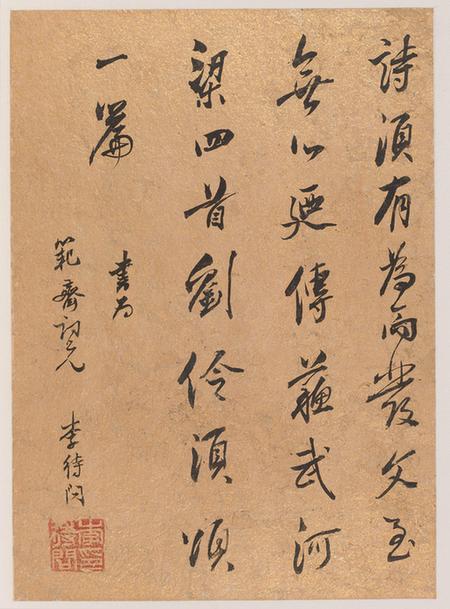 詩須有為而發文至
無心更傳蘇武河
梁四首劉伶須頌
一篇
書為
範齋詞兄 李待問